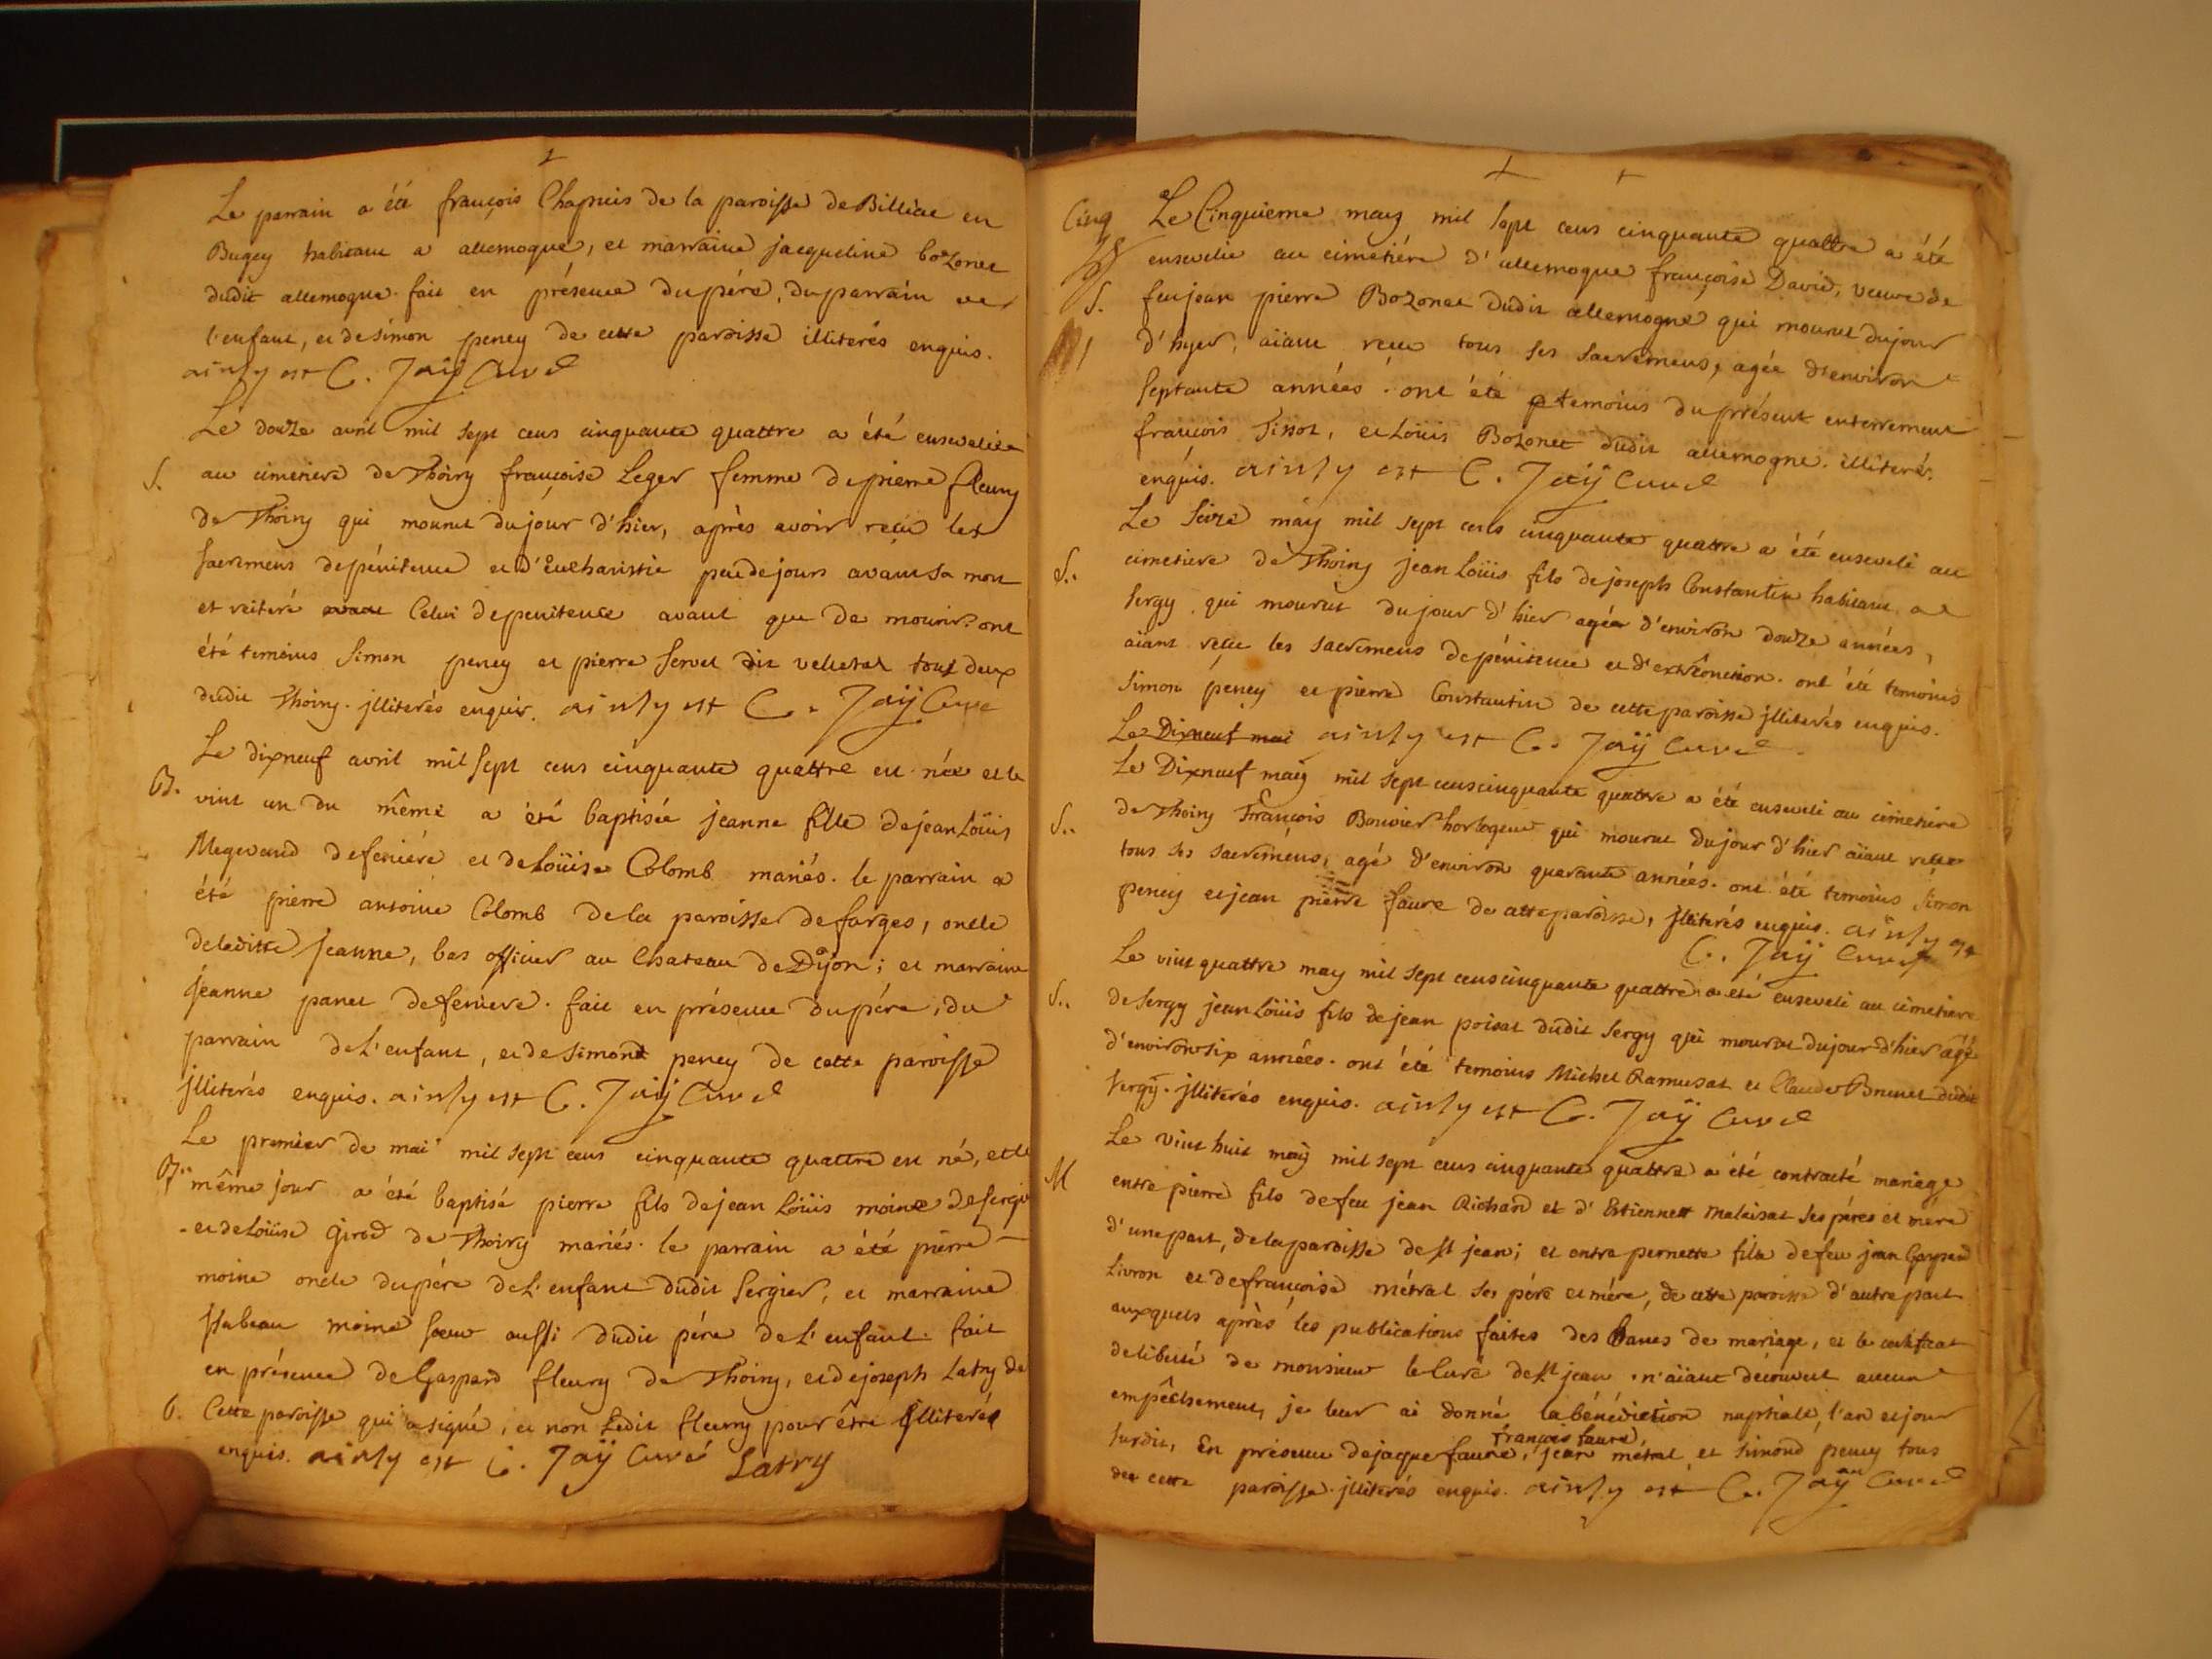 Le parrain a été françois Chapuis de la paroisse de Billiat en
Bugey habitant a allemogne, et marraine jacqueline bozonet
dudit allemogne. fait en présence du pére, du parrain de
l'enfant, et de simon peney de cette paroisse illiterés enquis.
ainsy est C. Jaÿ Curé
Le douze avril mil sept cens cinquante quattre a été ensevelie
S. au cimetiere de Thoiry françoise Leger femme de pierre fleury
de Thoiry qui mourut du jour d'hier, après avoir reçu les
sacremens de pénitence et d'Eucharistie peu de jours avant sa mort
et reiteré avant Celui de penitence avant que de mourir. ont
été temoins Simon peney et pierre Servet dit velletat tout deux
dudit Thoiry. jlliterés enquis. ainsy est C. Jaÿ Curé
Le dixneuf avril mil sept cens cinquante quattre est née et le
B. vint un du même a été baptisée jeanne fille de jean Loüis
Megevand de feniére et de Loüise Colomb mariés. le parrain a
été pierre antoine Colomb de la paroisse de farges, oncle
de laditte jeanne, bas officier au Chateau de Dijon; et marraine
jeanne panet de feniere. fait en présence du pére, du
parrain de l'enfant, et de simond peney de cette paroisse
jlliterés enquis. ainsy est C. Jaÿ Curé
Le premier de mai mil sept cens cinquante quattre est né, et le
B.. même jour a été baptisé pierre fils de jean Loüis moine de sergi
et de Loüise girod de Thoiry mariés. le parrain a été pierre
moine oncle du pére de l'enfant dudit Sergier, et marraine
jsabeau moine soeur aussi dudit pére de l'enfant. fait
en présence de Gaspard fleury de Thoiry, et de joseph Latry de
6. Cette paroisse qui a signé, et non Ledit fleury pour être jlliterés
enquis. ainsy est C. Jaÿ Curé Latry
Cinq Le Cinquieme may mil sept cens cinquante quattre a été
ensevelie au cimetiére d'allemogne françoise David, veuve de
S. feu jean pierre Bozonet dudit allemogne qui mourut du jour
d'hyer, aïant recu tous ses sacremens, agée d'environ
septante années. ont été temoins du présent enterrement
françois Tissot, et Loüis Bozonet dudit allemogne. illiterés
enquis. ainsy est C. Jaÿ Curé
Le seize may mil sept cens cinquante quattre a été enseveli au
S.. cimetiere de Thoiry jean Loüis fils de joseph Constantin habitant a
sergy qui mourut du jour d'hier agée d'environ douze années,
aïant reçu les sacremens de pénitence et d'extrêonction. ont été temoins
Simon peney et pierre Constantin de cette paroisse jlliterés enquis.
Le Dixneuf mai ainsy est C. Jaÿ Curé
Le Dixneuf maÿ mil sept cens cinquante quattre a été enseveli au cimetiére
S.. de Thoiry François Bouvier horlogeur qui mourut du jour d'hier aïant reçu
tous ses sacremens, agé d'environ quarante années. ont été temoins Simon
peney et jean pierre faure de cette paroisse, jlliterés enquis. ainsy est
C. Jaÿ Curé
Le vint quattre may mil sept cens cinquante quattre a été enseveli au cimetiere
S.. de Sergy jean Loüis fils de jean poisat dudit Sergy qui mourut du jour d'hier agé
d'environ six années. ont été temoins Michel Ramusat et Claude Brunet dudit
sergy. jlliterés enquis. ainsy est C. Jaÿ Curé
Le vint huit maÿ mil sept cens cinquante quattre a été contracté mariage
M entre pierre fils de feu jean Richard et d'Estiennett malaisat ses péres et mére
d'une part, de la paroisse de st jean; et entre pernette fille de feu jean Gaspard
Livron et de françoise métral ses pére et mére, de cette paroisse d'autre part
auxquels après les publications faites des bancs de mariage, et le certificat
de liberté de monsieur le Curé de st jean. n'aïant découvert aucun
empêchement, je leur ai donné la bénédiction nuptiale, l'an et jour
françois faure
susdit, En présence de jaque faure, jean métral et simond peney tous
de cette paroisse. jlliterés enquis. ainsy est C. Jaÿ Curé